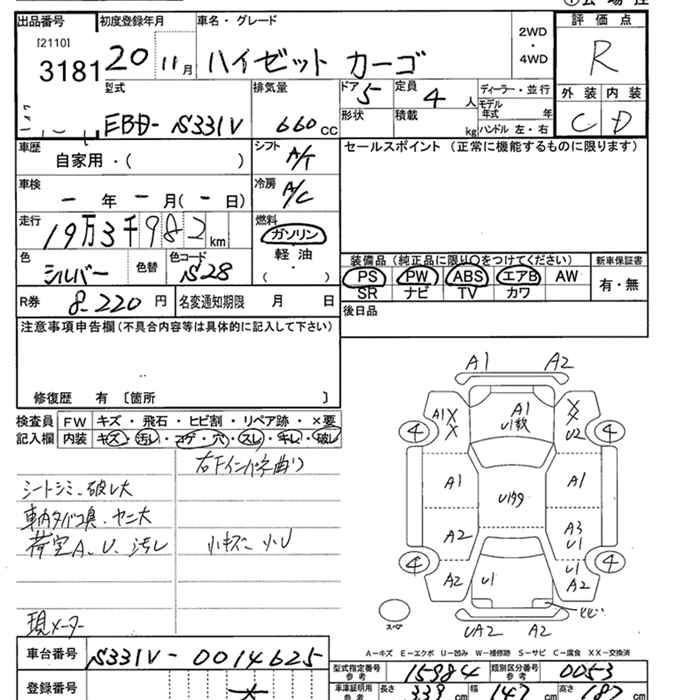 出品番号 初度登録年月 車名・グレード 評価点
[2110]
3181 20 11月 ハイゼット カーゴ 2WD・4WD R
型式 排気量 ドア 5 定員 4人 ディーラー・並行 外装 内装
EBD-S331V 660cc 形状 積載 kg モデル年式 年 C D
ハンドル 左・右
車歴 シフト セールスポイント (正常に機能するものに限ります)
自家用・( ) A/T
車検 冷房
ー年ー月(ー日) A/C
走行 燃料
19万3千982km ガソリン
色 色替 色コード 軽油
シルバー S28 ( )
装備品 (純正品に限り○をつけてください) 新車保証書
PS PW ABS エアB AW 有・無
SR ナビ TV カワ
R券 8,220円 名変通知期限 月 日
後日品
注意事項申告欄(不具合内容等は具体的に記入して下さい)
修復歴 有 〔箇所 〕
検査員 FW キズ・飛石・ヒビ割・リペア跡・×要
記入欄 内装 キズ・汚れ・コゲ・穴・スレ・キレ・破レ
シートシミ、破レ大
車内タバコ臭、ヤニ大
荷室A、U、汚レ 小キズ、小U
現メーター
A1 A2
A1 X X A1 U1数 X X U2
4 4
A1 U1多 A1
A2 A3 U1
4 4
A2 U1 U1 A2
スペア UA2 A2
A-キズ E-エクボ U-凹み W-補修跡 S-サビ C-腐食 XX-交換済
車台番号 S331V-0014625
型式指定番号 参考 15984 類別区分番号 参考 0053
登録番号
車庫証明用 参考 長さ 339cm 幅 147cm 高さ 187cm